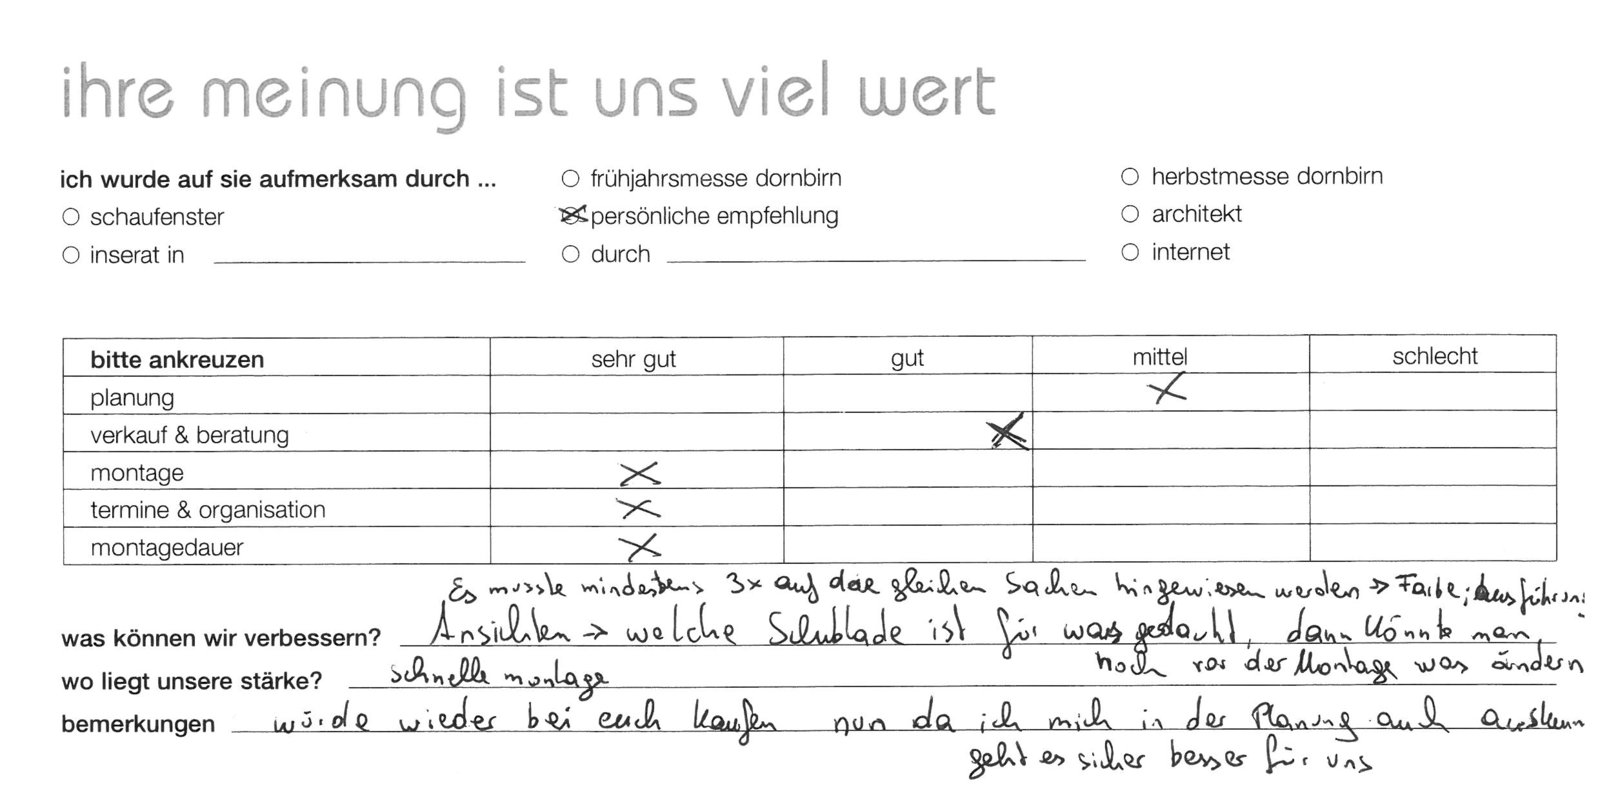 ihre meinung ist uns viel wert
ich wurde auf sie aufmerksam durch ... ○ frühjahrsmesse dornbirn ○ herbstmesse dornbirn
○ schaufenster ☒ persönliche empfehlung ○ architekt
○ inserat in ○ durch ○ internet
bitte ankreuzen sehr gut gut mittel schlecht
planung X
verkauf & beratung X
montage X
termine & organisation X
montagedauer X
Es musste mindestens 3x auf die gleichen Sachen hingewiesen werden → Farbe; Ausführun
was können wir verbessern? Ansichten → welche Schublade ist für was gedacht, dann könnte man
noch vor der Montage was ändern
wo liegt unsere stärke? schnelle montage
bemerkungen würde wieder bei euch kaufen nun da ich mich in der Planung auch auskenn
geht es sicher besser für uns